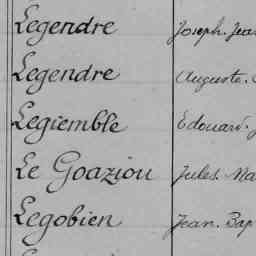 Legendre Joseph. Jea
Legendre Auguste.
Legiemble Edouard.
Le Goaziou Jules. Ma
Legobien Jean. Bap